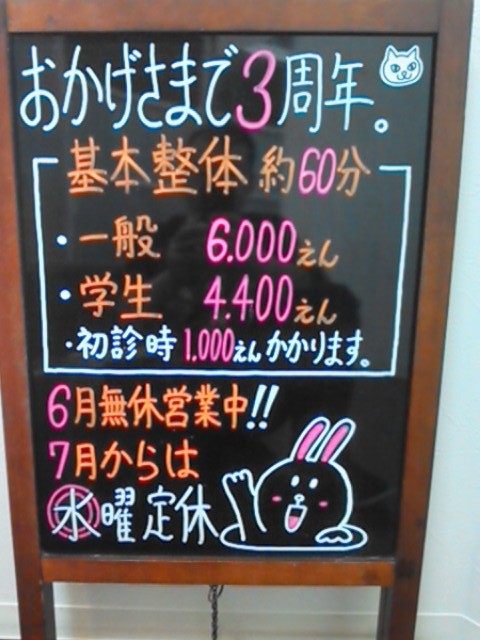 おかげさまで3周年。
基本整体 約60分
・一般 6.000えん
・学生 4.400えん
・初診時1.000えんかかります。
6月無休営業中!!
7月からは
水曜定休